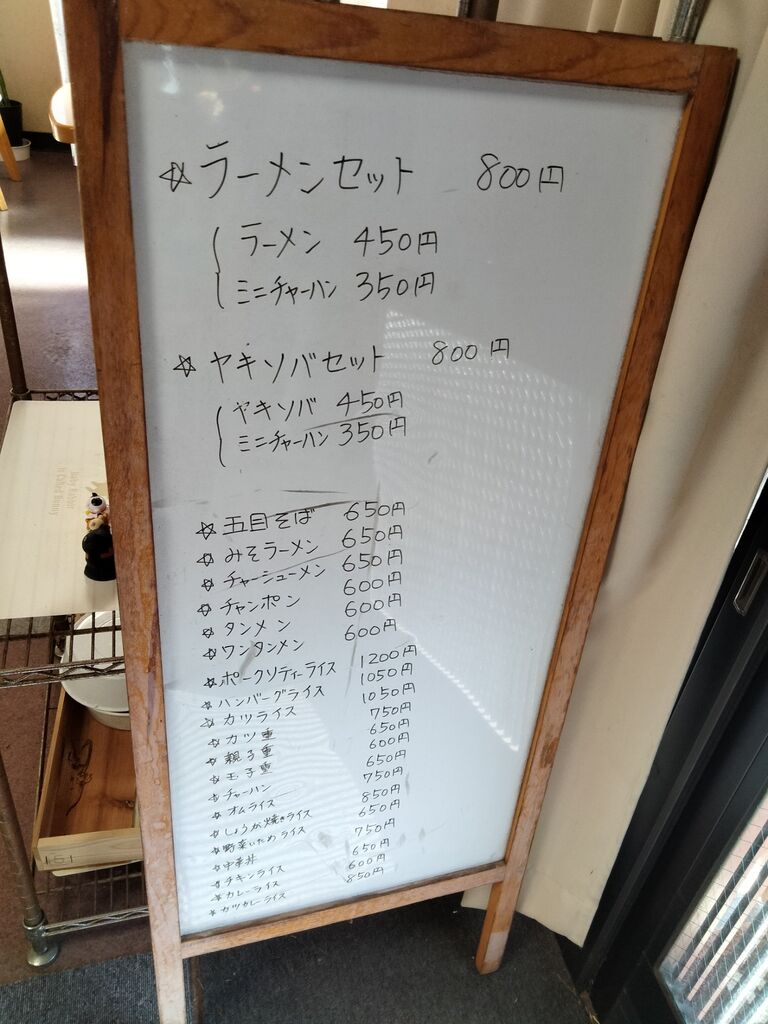 ☆ラーメンセット 800円
ラーメン 450円
ミニチャーハン 350円
☆ヤキソバセット 800円
ヤキソバ 450円
ミニチャーハン 350円
☆五目そば 650円
☆みそラーメン 650円
☆チャーシューメン 650円
☆チャンポン 600円
☆タンメン 600円
☆ワンタンメン 600円
☆ポークソティーライス 1200円
☆ハンバーグライス 1050円
☆カツライス 1050円
☆カツ重 750円
☆親子重 650円
☆玉子重 600円
☆チャーハン 650円
☆オムライス 750円
☆しょうが焼きライス 850円
☆野菜いためライス 650円
☆中華丼 750円
☆チキンライス 650円
☆カレーライス 600円
☆カツカレーライス 850円
Baby Rabbit
is Called Bunny